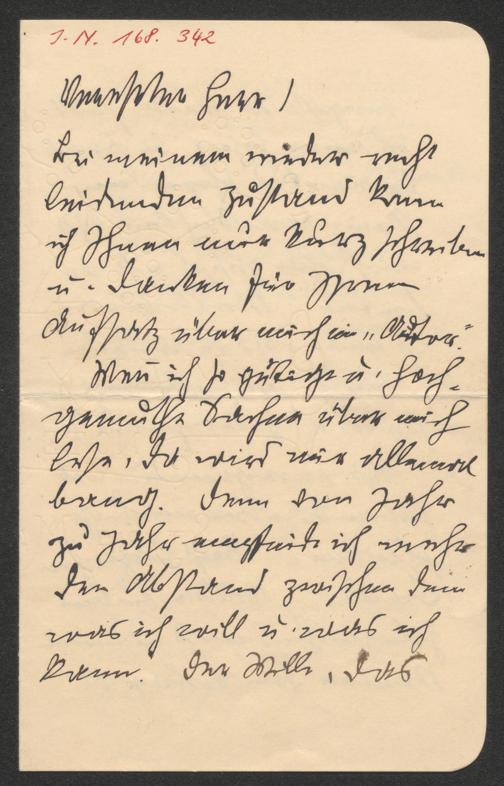 I.N. 168.342
Verehrter Herr!
Bei meinem wieder recht
leidenden Zustand kann
ich Ihnen nur kurz schreiben
u. danken für Ihren
Aufsatz über mich im „Autor".
Wenn ich so gütige u. hoch-
gemuthe Sachen über mich
lese, da wird mir allemal
bang. Denn von Jahr
zu Jahr empfinde ich mehr
den Abstand zwischen dem
was ich will u. was ich
kann. Der Wille, das